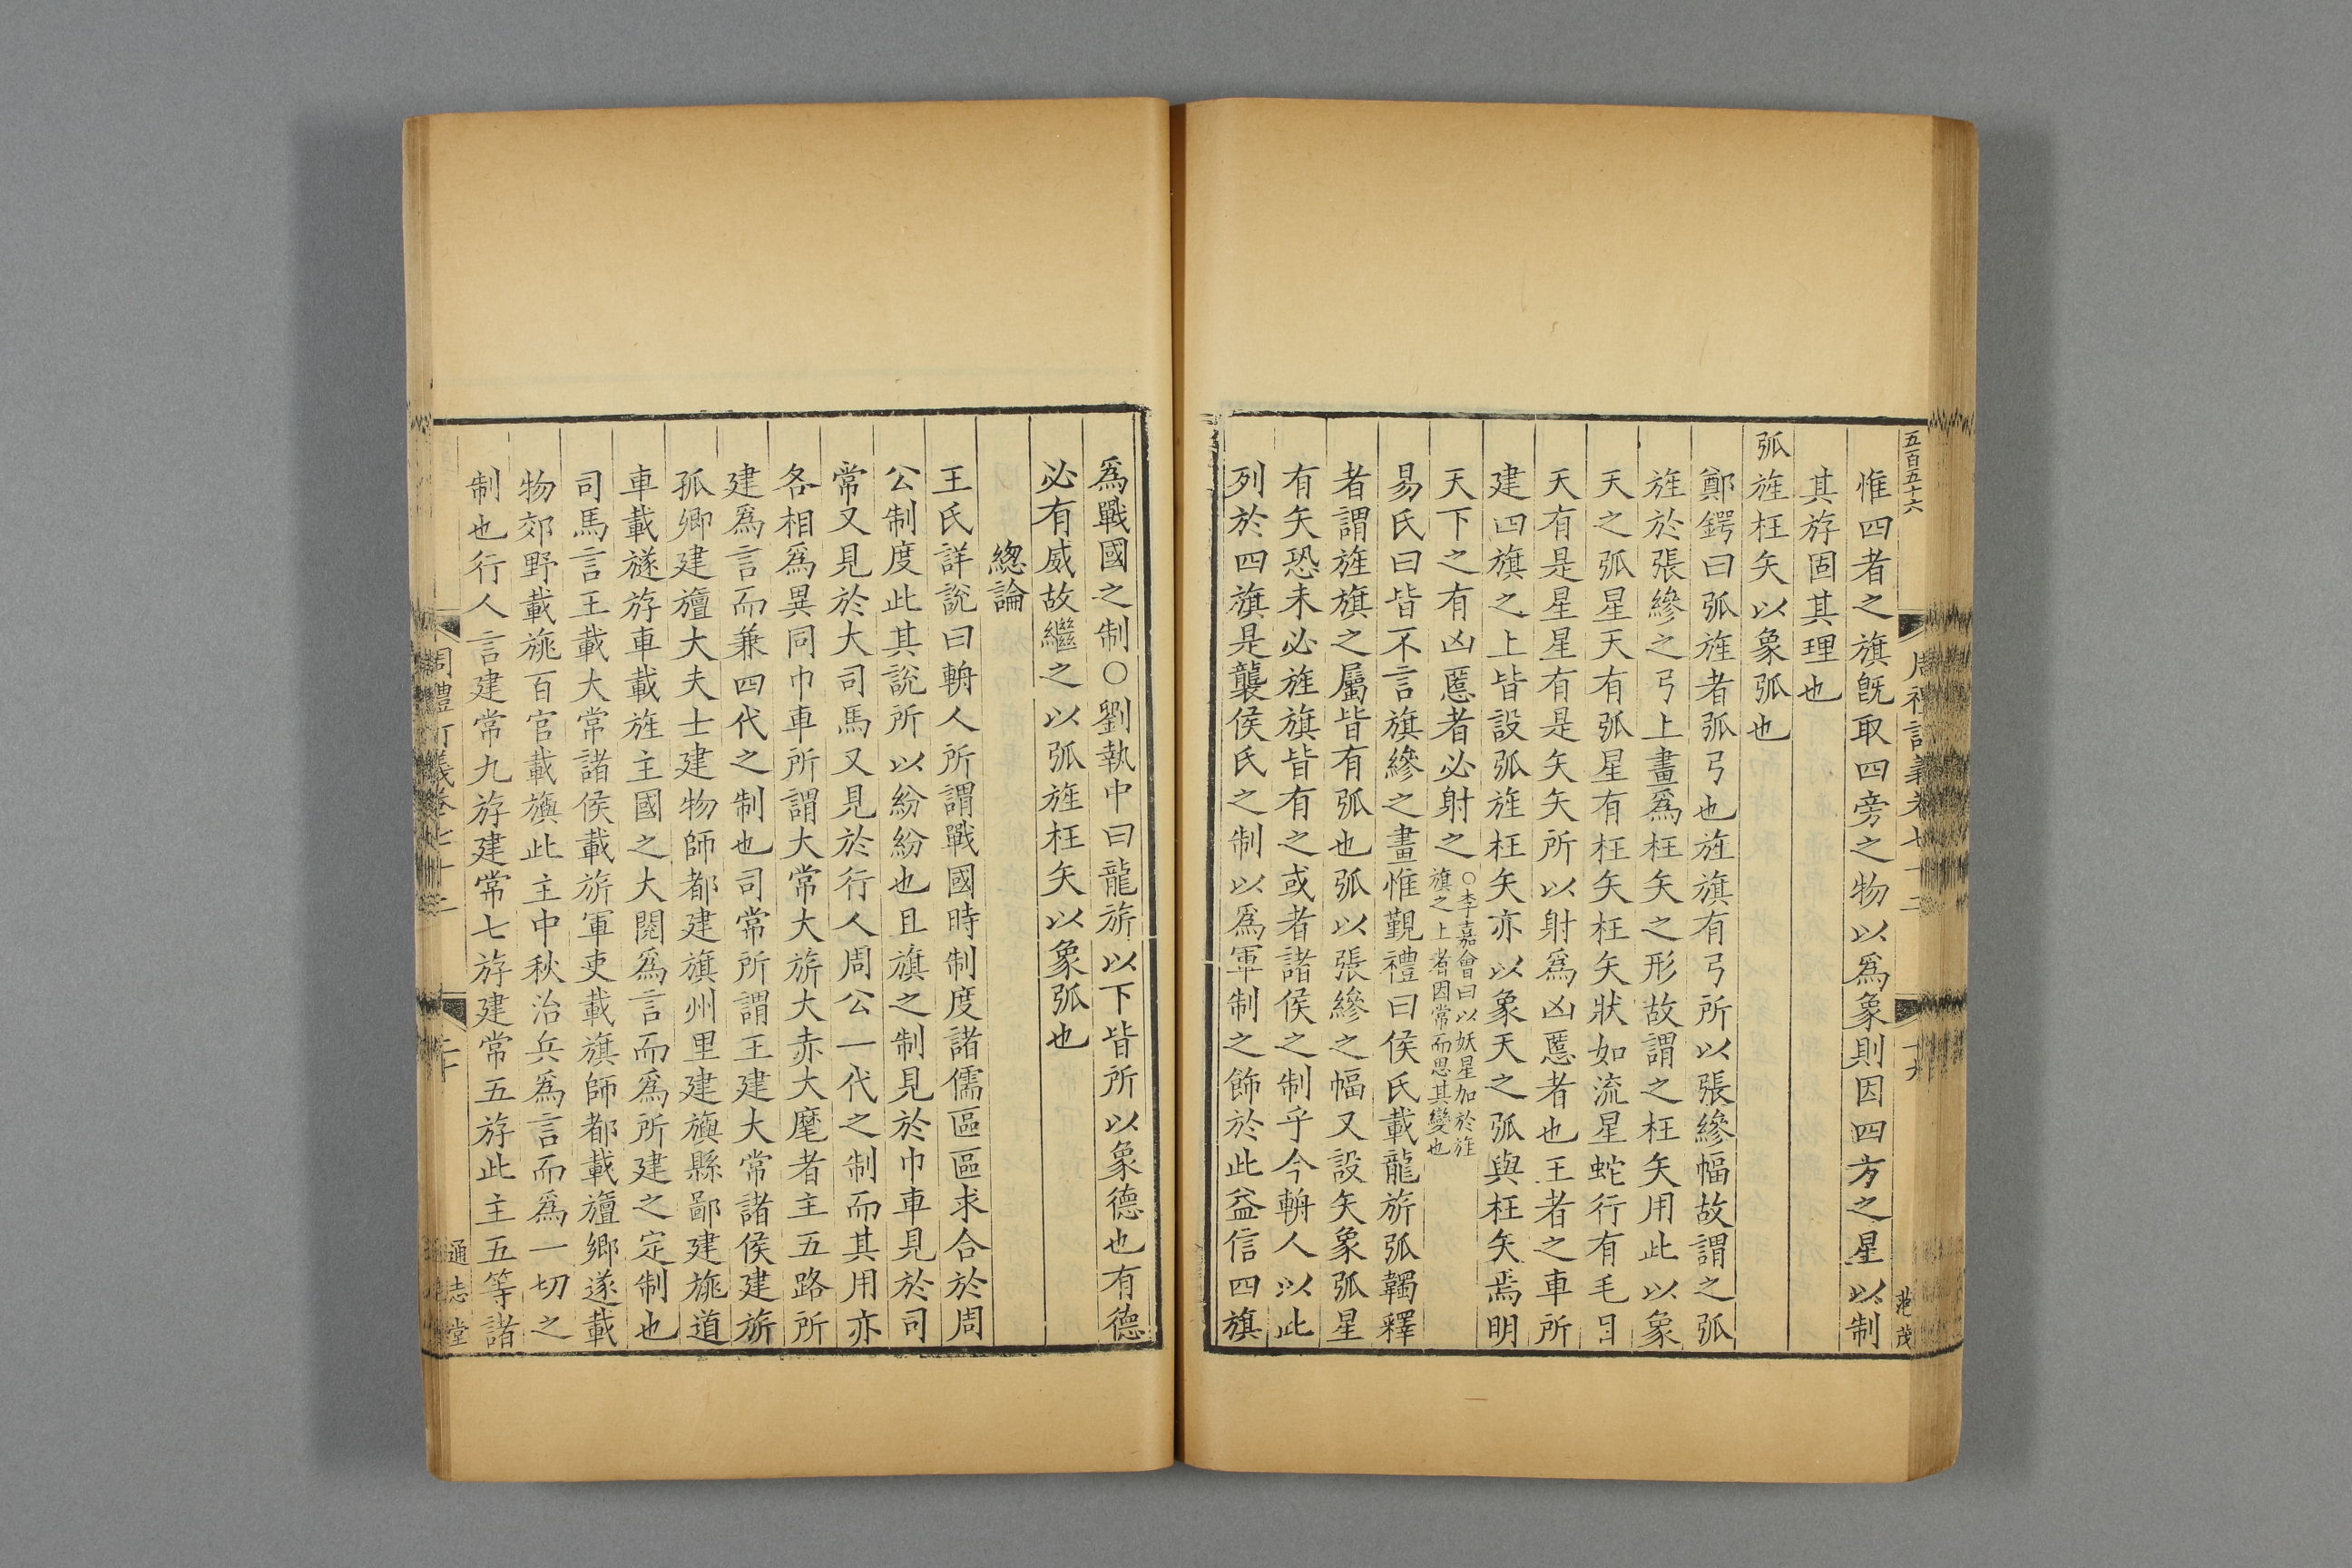 五百五十六
惟四者之旗旣取四旁之物以爲象則因四方之星以制
其斿固其理也
弧旌枉矢以象弧也
鄭鍔曰弧旌者弧弓也旌旗有弓所以張縿幅故謂之弧
旌於張縿之弓上畫爲枉矢之形故謂之枉矢用此以象
天之弧星天有弧星有枉矢枉矢狀如流星蛇行有毛目
天有是星星有是矢矢所以射爲凶慝者也王者之車所
建四旗之上皆設弧旌枉矢亦以象天之弧與枉矢焉明
天下之有凶慝者必射之○李嘉會曰以妖星加於旌
旗之上者因常而思其變也
易氏曰皆不言旗縿之畫惟覲禮曰侯氏載龍旂弧韣釋
者謂旌旗之屬皆有弧也弧以張縿之幅又設矢象弧星
有矢恐未必旌旗皆有之或者諸侯之制乎今輈人以此
列於四旗是襲侯氏之制以爲軍制之飾於此益信四旗
周禮訂義卷七十二
十九
范茂
爲戰國之制○劉執中曰龍旂以下皆所以象德也有德
必有威故繼之以弧旌枉矢以象弧也
總論
王氏詳說曰輈人所謂戰國時制度諸儒區區求合於周
公制度此其說所以紛紛也且旗之制見於巾車見於司
常又見於大司馬又見於行人周公一代之制而其用亦
各相爲異同巾車所謂大常大旂大赤大麾者主五路所
建爲言而兼四代之制也司常所謂王建大常諸侯建旂
孤卿建旜大夫士建物師都建旗州里建旟縣鄙建旐道
車載旞斿車載旌主國之大閱爲言而爲所建之定制也
司馬言王載大常諸侯載旂軍吏載旗師都載旜鄉遂載
物郊野載旐百官載旟此主中秋治兵爲言而爲一切之
制也行人言建常九斿建常七斿建常五斿此主五等諸
周禮訂義卷七十二
二十
通志堂